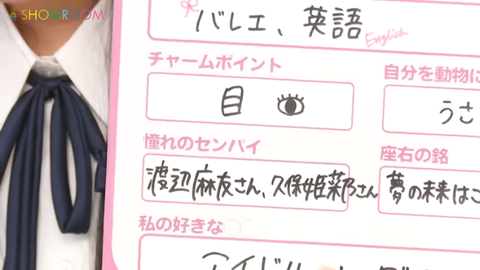 SHOWROOM
バレエ、英語
English
チャームポイント
自分を動物に
目
うさ
憧れのセンパイ
座右の銘
渡辺麻友さん、久保姫菜乃さん
夢の未来はこ
私の好きな○○